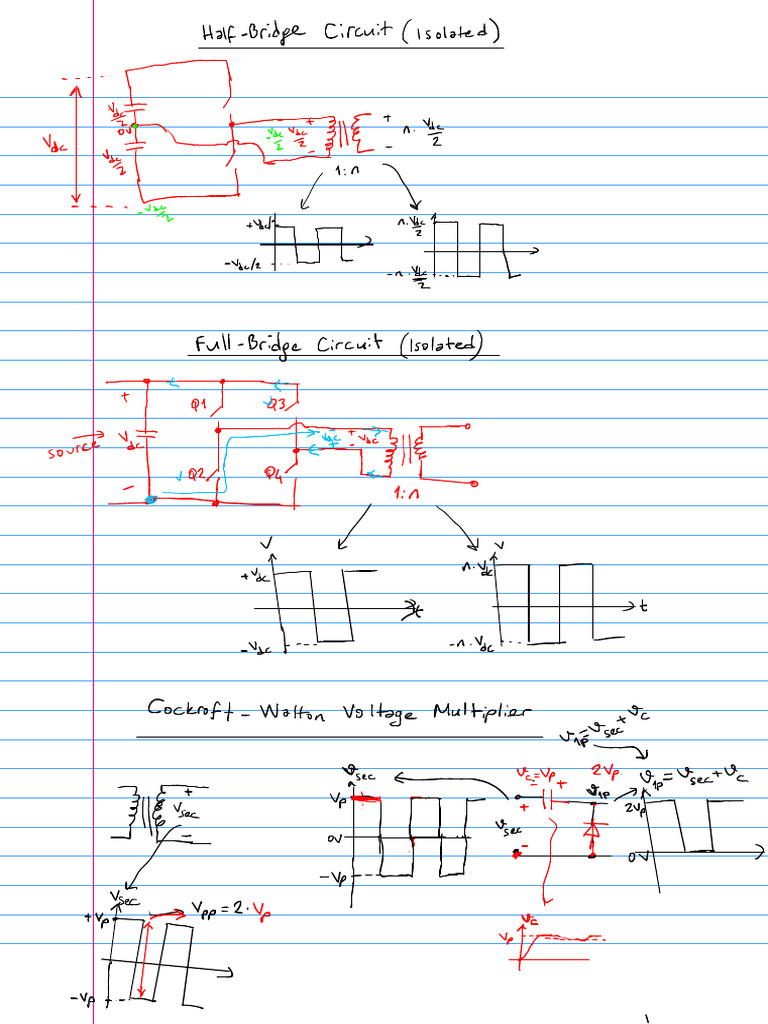 Half-Bridge Circuit (Isolated)
Vdc
Vdc/2
0V
Vdc/2
-Vdc/2
-Vdc/2
+
Vdc/2
-
+
n.Vdc/2
-
1:n
+Vdc/
-Vdc/2
n.Vdc/2
-n.Vdc/2
Full-Bridge Circuit (Isolated)
+
Q1
Q3
source
Vdc
-
Q2
Q4
-
Vdc
+
+
Vdc
-
1:n
V
+Vdc
-Vdc
t
V
n.Vdc
-n.Vdc
t
Cockroft-Walton Voltage Multiplier
V1p=Vsec+Vc
+
Vsec
-
Vsec
Vp
0V
-Vp
Vc=Vp
2Vp
-
+
V1p
+
Vsec
-
V1p=Vsec+Vc
2Vp
0V
Vsec
+Vp
-Vp
Vpp=2.Vp
Vc
Vp